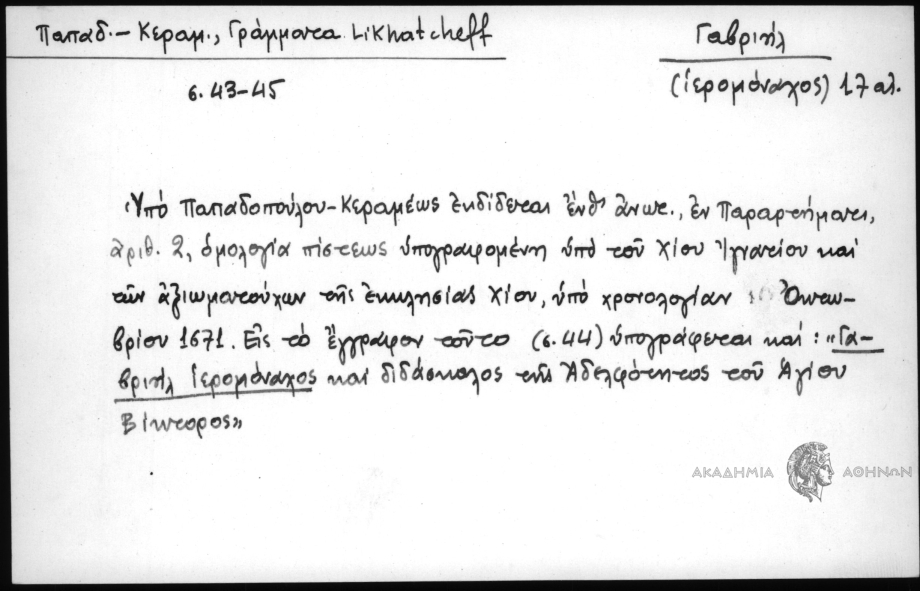 Παπαδ.-Κεραμ., Γράμματα Likhatcheff
Γαβριήλ
(ἱερομόναχος) 17 αἰ.
σ. 43-45
Ὑπό Παπαδοπούλου-Κεραμέως ἐκδίδεται ἔνθ' ἄνωτ., ἐν Παραρτήματι,
ἀριθ. 2, ὁμολογία πίστεως ὑπογραφομένη ὑπό τοῦ Χίου Ἰγνατίου καί
τῶν ἀξιωματούχων τῆς ἐκκλησίας Χίου, ὑπό χρονολογίαν Ὀκτω-
βρίου 1671. Εἰς τό ἔγγραφον τοῦτο (σ. 44) ὑπογράφεται καί: «Γα-
βριήλ Ἱερομόναχος καί διδάσκαλος τῆς Ἀδελφότητος τοῦ Ἁγίου
Βίκτορος»
ΑΚΑΔΗΜΙΑ ΑΘΗΝΩΝ